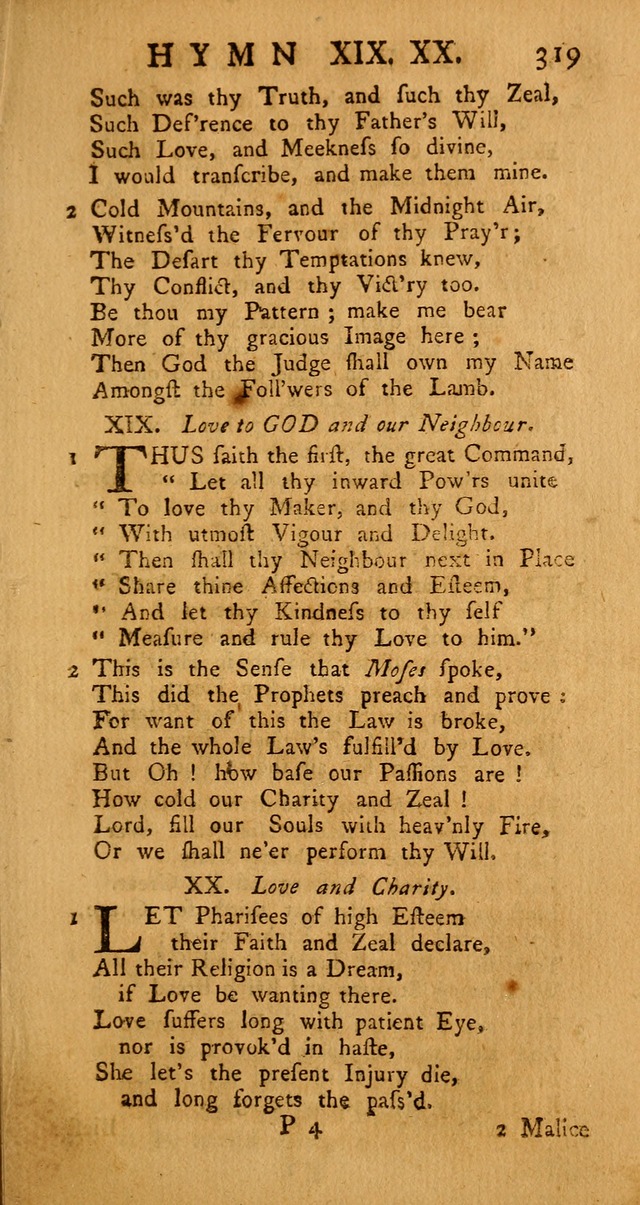 HYMN XIX. XX. 319
Such was thy Truth, and ſuch thy Zeal,
Such Def'rence to thy Father's Will,
Such Love, and Meekneſs ſo divine,
I would tranſcribe, and make them mine.
2 Cold Mountains, and the Midnight Air,
Witneſs'd the Fervour of thy Pray'r;
The Deſart thy Temptations knew,
Thy Conflict, and thy Vict'ry too.
Be thou my Pattern; make me bear
More of thy gracious Image here;
Then God the Judge ſhall own my Name
Amongſt the Foll'wers of the Lamb.
XIX. Love to GOD and our Neighbour.
1 THUS ſaith the firſt, the great Command,
“ Let all thy inward Pow'rs unite
“ To love thy Maker, and thy God,
“ With utmoſt Vigour and Delight.
“ Then ſhall thy Neighbour next in Place
“ Share thine Affections and Eſteem,
“ And let thy Kindneſs to thy ſelf
“ Meaſure and rule thy Love to him.”
2 This is the Senſe that Moſes ſpoke,
This did the Prophets preach and prove:
For want of this the Law is broke,
And the whole Law's fulfill'd by Love.
But Oh! how baſe our Paſſions are!
How cold our Charity and Zeal!
Lord, fill our Souls with heav'nly Fire,
Or we ſhall ne'er perform thy Will.
XX. Love and Charity.
1 LET Phariſees of high Eſteem
their Faith and Zeal declare,
All their Religion is a Dream,
if Love be wanting there.
Love ſuffers long with patient Eye,
nor is provok'd in haſte,
She let's the preſent Injury die,
and long forgets the paſs'd.
P 4 2 Malice